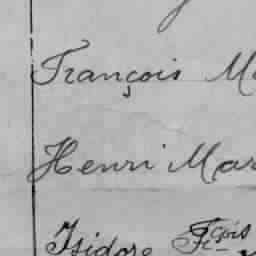 François Ma
Henri Mar
Isidore Fçois